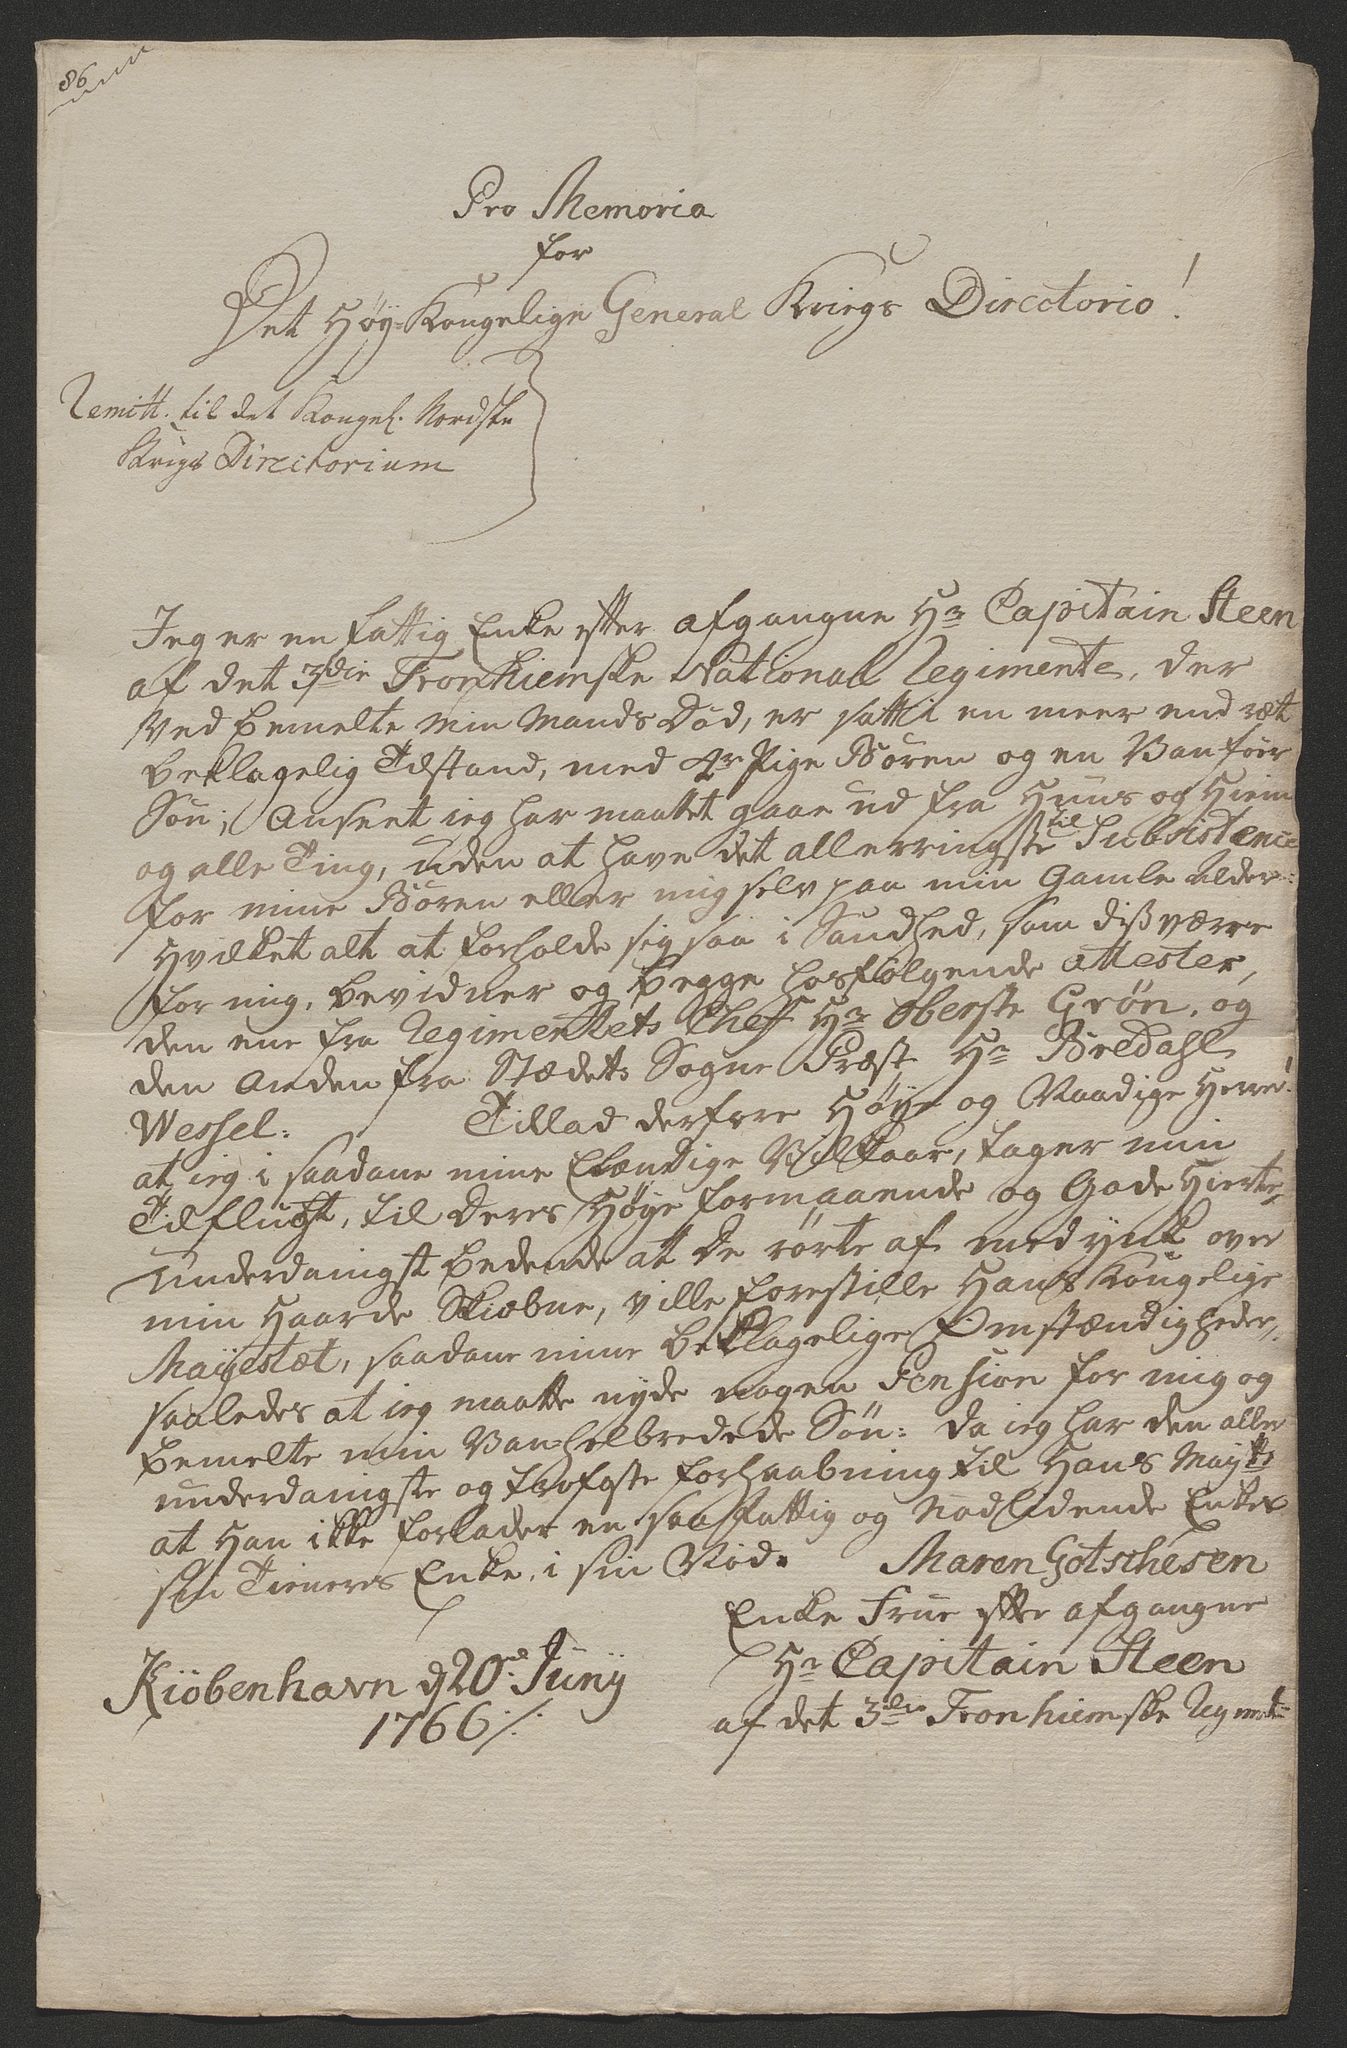 86
Pro Memoria
for
Det Høy-Kongelige General Kriegs Directorio!
Remitt. til det Kongel. Nordske
Krigs Directorium
Jeg er en fattig Enke efter afgangne Hr Capitain Steen
af det 3die Tronhiemske National Regimente, der
Ved bemelte min Mands Død, er satt i en meer end ræt
beklagelig Tilstand, med 4r Pige Børen og en Vanför
Søn; Anseet ieg har maattet gaae ud fra Huus og Hiem
og alle Ting, uden at have det allerringste til Subsistence
for mine Børen eller mig selv paa min Gamle Alder:
Hvilket alt at forholde sig saa i Sandhed, som dißværre
for mig, bevidner og begge hosfølgende Attester,
den ene fra Regimentets Chef Hr Oberste Grøn, og
den Anden fra Stædets Sogne Præst Hr Bredahl
Wessel: Tillad derfore Høye og Naadige Herrer!
at ieg i saadane mine Elændige Vilkaar, tager min
Tilflucht, til Deres Høye formaaende og Gode Hierter
Underdanigst bedende att De rørte af medynk over
min Haarde Skiæbne, ville forestille Hans Kongelige
Mayestæt, saadane mine beklagelige Omstændigheder,
saaledes at ieg maatte nyde nogen Pension for mig og
bemelte min Vanhelbredede Søn: Da ieg har den aller
underdanigste og trofaste forhaabning til Hans Mayts
at Han ikke forlader en saa fattig og Nødlidende Enkes
sin Tieneres Enke, i sin Nød. Maren Gotschesen
Enke Frue efter afgangne
Hr Capitain Steen
af det 3die Tronhiemske Regmt
Kiöbenhavn d 20de Junij
1766 ./.